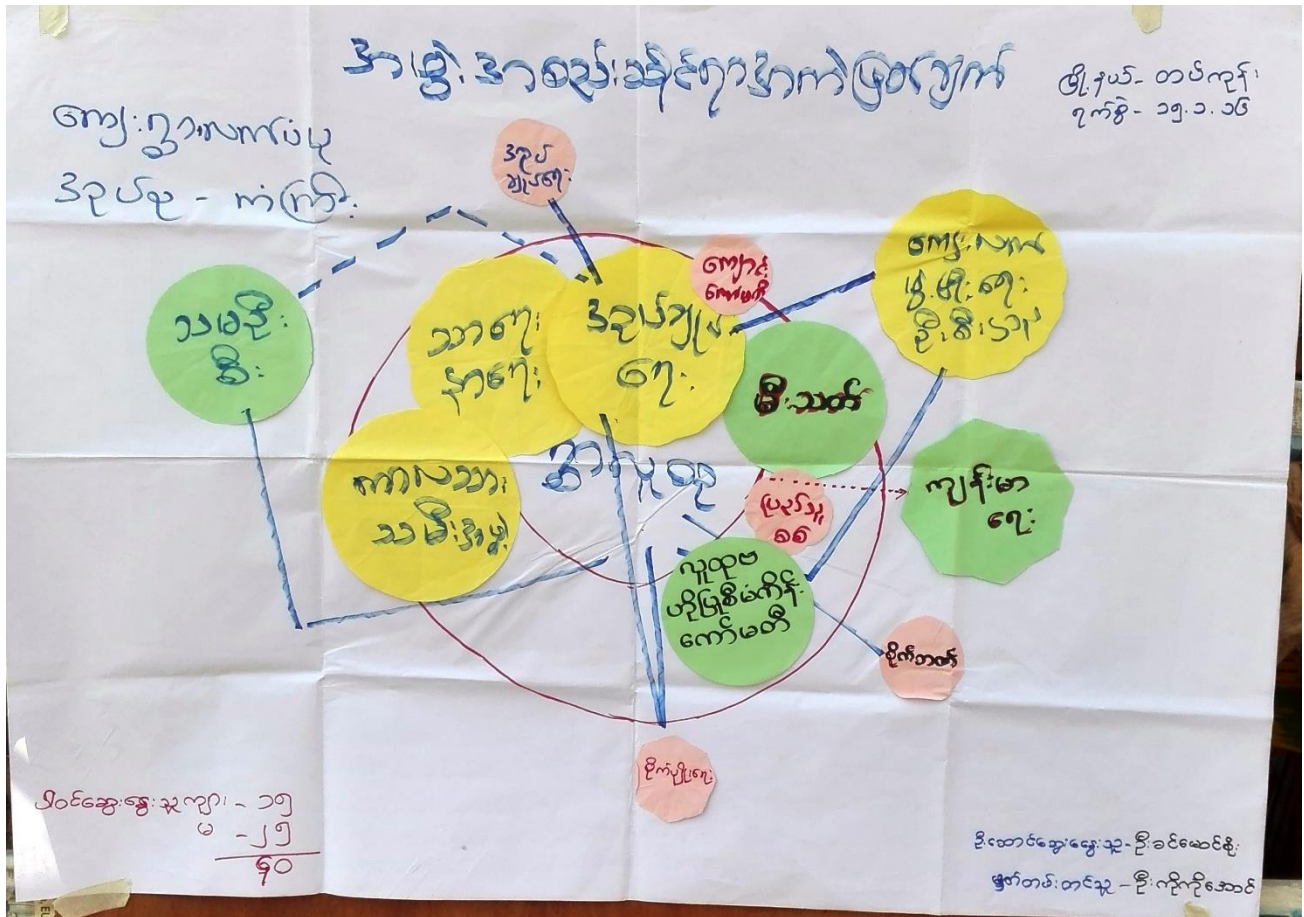 အဖွဲ့အစည်းဆိုင်ရာအကဲဖြတ်ချက်
မြို့နယ် - တပ်ကုန်း
ရက်စွဲ - ၁၅.၁.၁၆
ကျေးရွာ
အုပ်စု - ကံကြီး
အုပ်
ချုပ်ရေး
ကျောင်း
ကော်မတီ
ကျေးလက်
ဖွံ့ဖြိုးရေး
ဦးစီးဌာန
သမဦး
စီး
သာရေး
နာရေး
အုပ်ချုပ်
ရေး
မီးသတ်
ကာလသား
သမီးအဖွဲ့
ရွာလူထု
ပြည်သူ့
စစ်
ကျန်းမာ
ရေး
လူထုဗ
ဟိုပြုစီမံကိန်း
ကော်မတီ
စိုက်ဘဏ်
စိုက်ပျိုးရေး
ပါဝင်ဆွေးနွေးသူကျား - ၁၅
မ - ၂၅
၄၀
ဦးဆောင်ဆွေးနွေးသူ - ဦးခင်မောင်စိုး
မှတ်တမ်းတင်သူ - ဦးကိုကိုအောင်